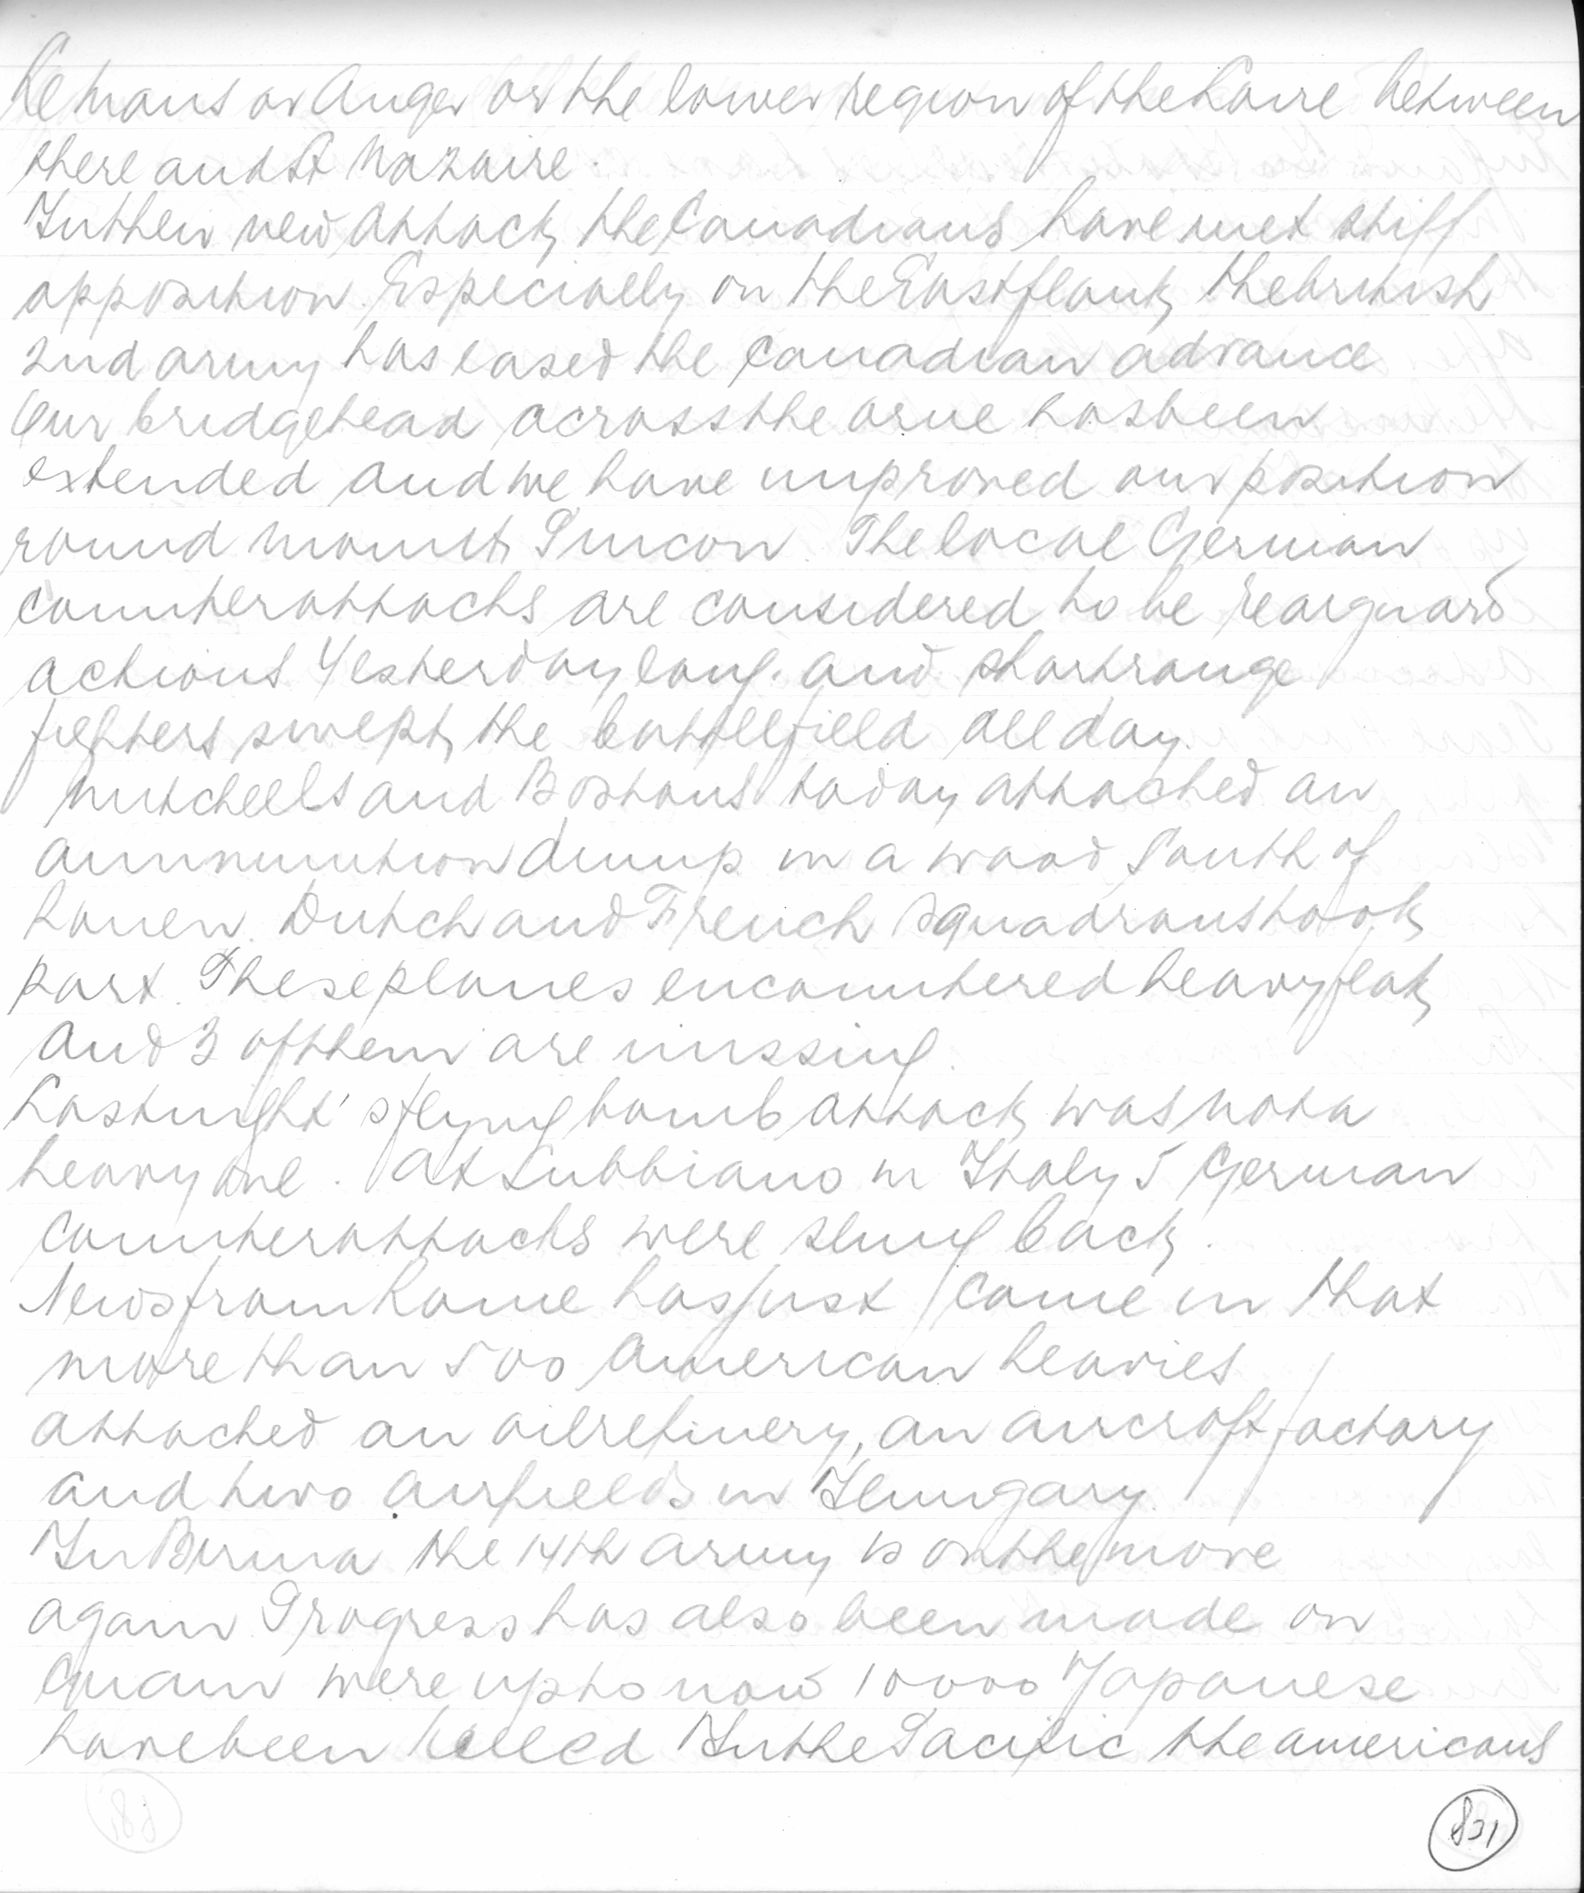 Le Mans or Anger or the lower region of the Loire between
there and St Nazaire.
In their new attack, the Canadians have met stiff
opposition. Especially on the East flank, the british
2nd army has eased the Canadian advance
Our bridgehead across the orne has been
extended and we have improved our position
round Mount Pincon. The local German
counterattacks are considered to be rearguard
actions Yesterday long- and shortrange
fighters swept the battlefield all day.
Mitchells and Bostons today attacked an
ammunition dump in a wood South of
Rouen. Dutch and French squadrons took
part. These planes encountered heavy flak
and 3 of them are missing.
Last night's flying bomb attack was not a
heavy one. At Subbiano in Italy 5 German
counterattacks were slung back.
News from Rome has just come in that
more than 500 American heavies
attacked an oilrefinery, an aircraft factory
and two airfields in Hungary.
In Burma the 14th army is on the move
again Progress has also been made on
Guam were up to now 10000 Japanese
have been killed In the Pacific the americans
831